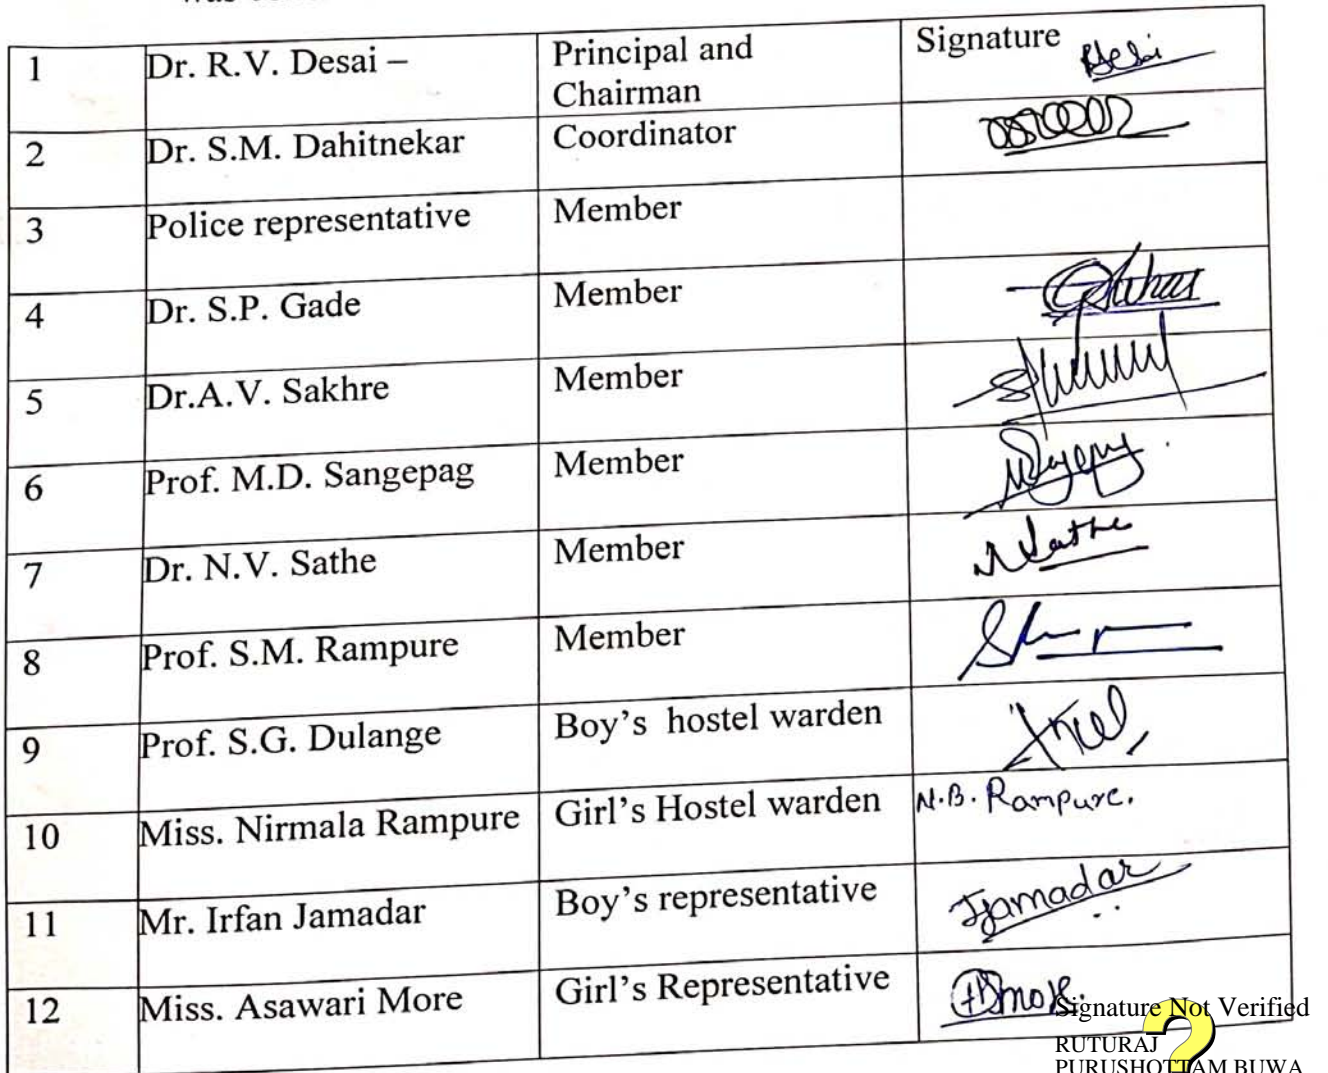 1 Dr. R.V. Desai – Principal and Signature Desai
Chairman
2 Dr. S.M. Dahitnekar Coordinator
3 Police representative Member
4 Dr. S.P. Gade Member
5 Dr.A.V. Sakhre Member
6 Prof. M.D. Sangepag Member
7 Dr. N.V. Sathe Member NSathe
8 Prof. S.M. Rampure Member
9 Prof. S.G. Dulange Boy's hostel warden
10 Miss. Nirmala Rampure Girl's Hostel warden N.B. Rampure.
11 Mr. Irfan Jamadar Boy's representative IJamadar
12 Miss. Asawari More Girl's Representative
Signature Not Verified
RUTURAJ
PURUSHOTTAM BUWA